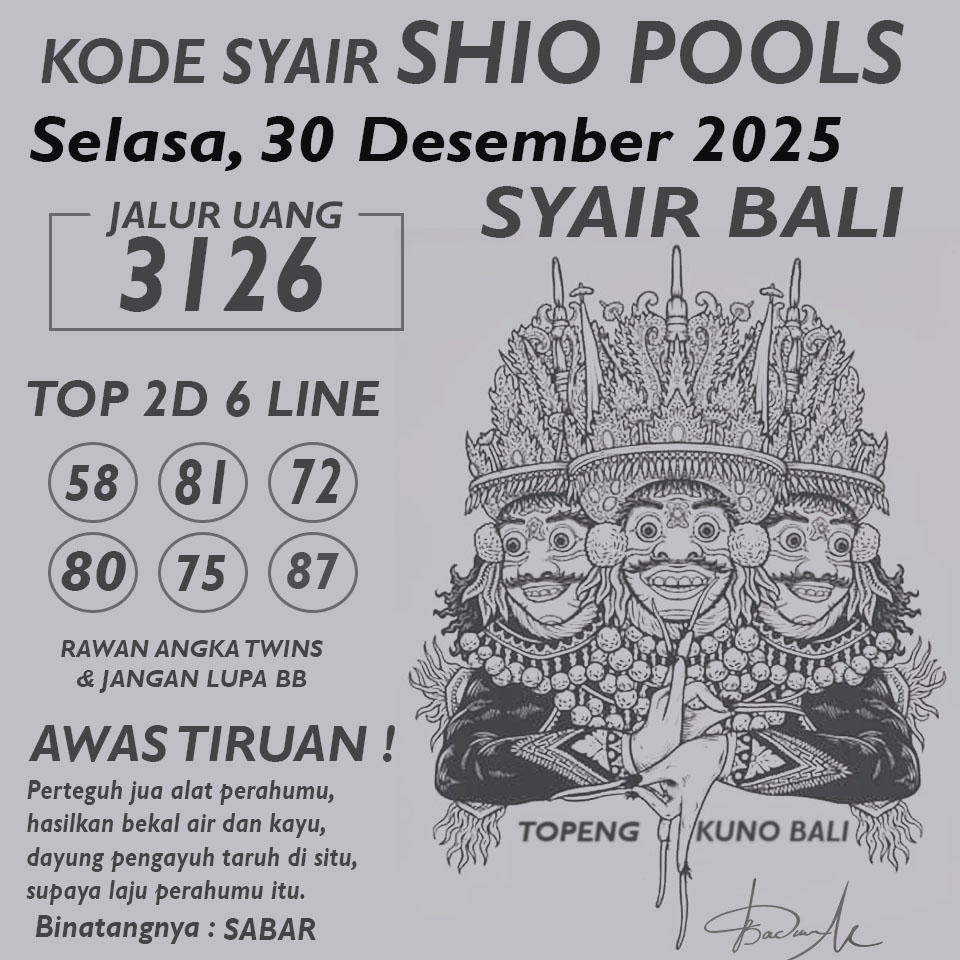 KODE SYAIR SHIO POOLS
Selasa, 30 Desember 2025
SYAIR BALI
JALUR UANG
3126
TOP 2D 6 LINE
58 81 72
80 75 87
RAWAN ANGKA TWINS
& JANGAN LUPA BB
AWAS TIRUAN !
Perteguh jua alat perahumu,
hasilkan bekal air dan kayu,
dayung pengayuh taruh di situ,
supaya laju perahumu itu.
Binatangnya : SABAR
TOPENG KUNO BALI